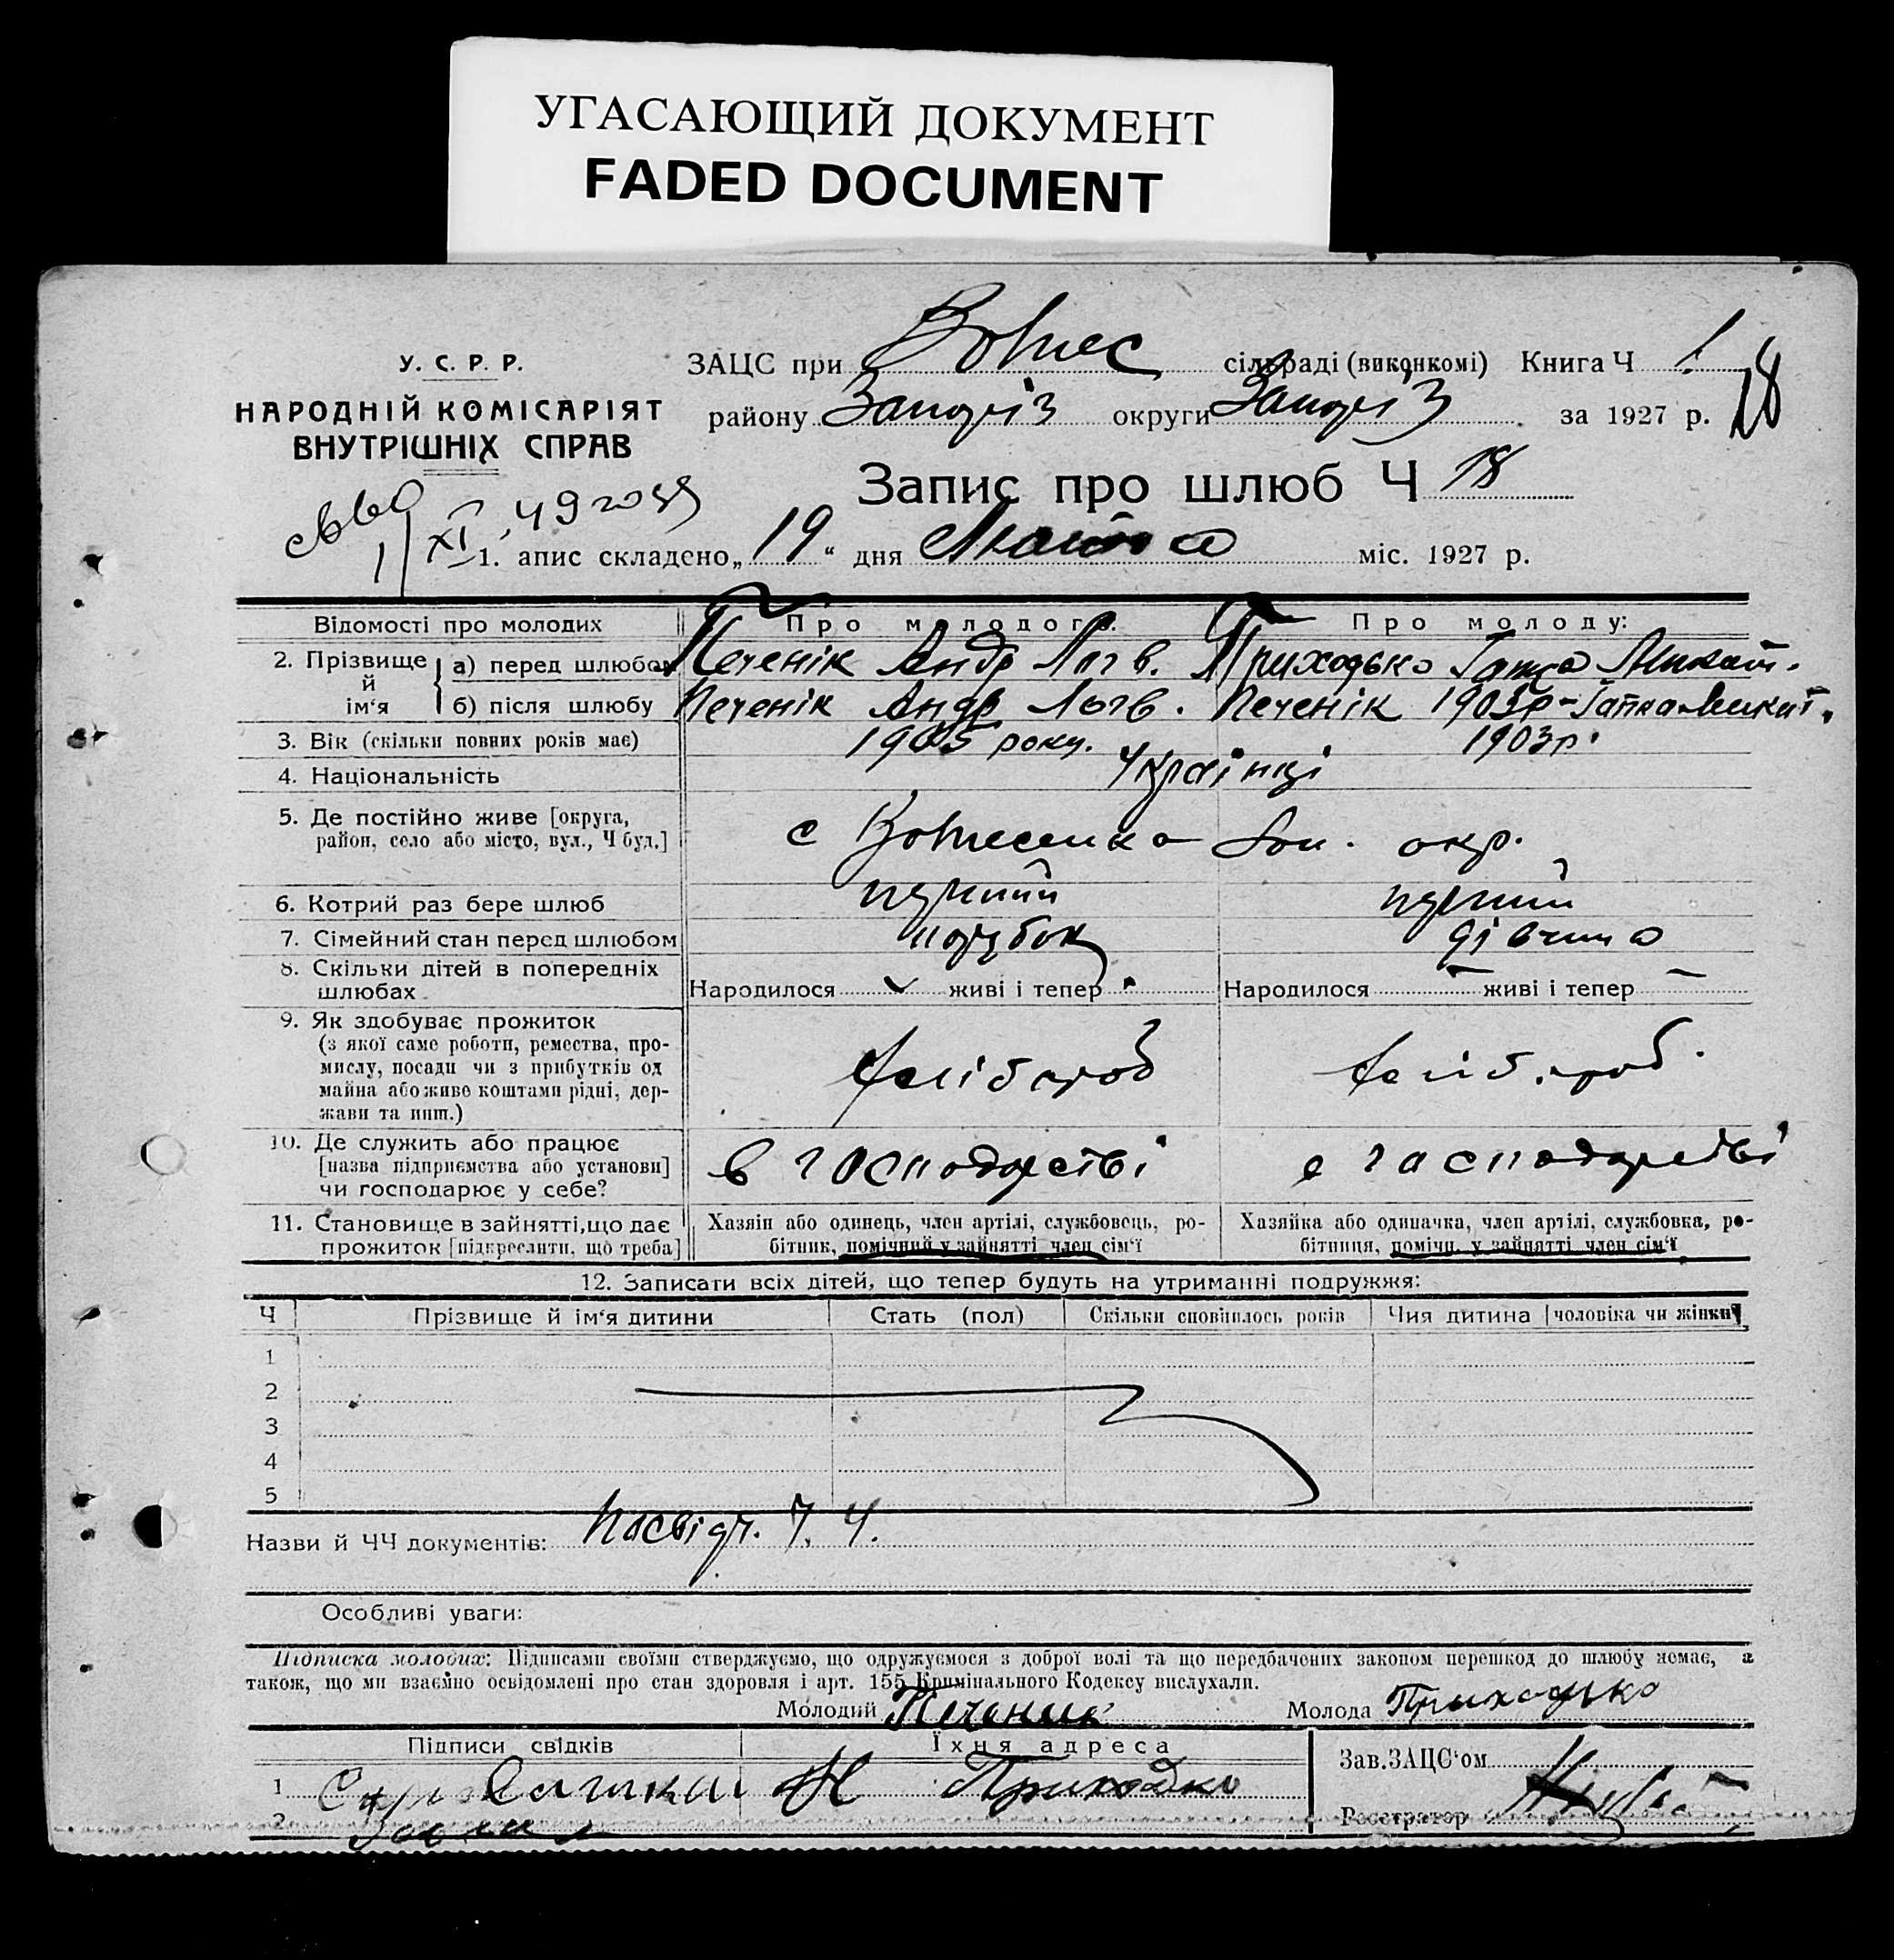 УГАСАЮЩИЙ ДОКУМЕНТ
FADED DOCUMENT
У. С. Р. Р.
НАРОДНІЙ КОМІСАРІЯТ
ВНУТРІШНІХ СПРАВ
ЗАЦС при Вознес сільраді (виконкомі) Книга Ч 1
району Запоріз округи Запоріз за 1927 р. 18
Запис про шлюб Ч 18
XI 49 года
1. апис складено „19“ дня Лютого міс. 1927 р.
Відомості про молодих Про молодого. Про молоду:
2. Прізвище й ім‘я
а) перед шлюбом Печенік Андр Логв. Приходько Гапка Микит.
б) після шлюбу Печенік Андр Логв. Печенік 1903р - Гапка Микит.
3. Вік (скільки повних років має) 1905 року. 1903р.
4. Національність Українці
5. Де постійно живе [округа, район, село або місто, вул., Ч буд.] с Вознесенка Зап. окр.
6. Котрий раз бере шлюб перший перший
7. Сімейний стан перед шлюбом парубок дівчина
8. Скільки дітей в попередніх шлюбах Народилося живі і тепер Народилося — живі і тепер —
9. Як здобуває прожиток
(з якої саме роботи, ремества, про-
мислу, посади чи з прибутків од
майна або живе коштами рідні, дер-
жави та инш.)
хлібороб хлібороб.
10. Де служить або працює
[назва підприємства або установи]
чи господарює у себе?
в господарстві в господарстві
11. Становище в зайнятті, що дає
прожиток [підкреслити, що треба]
Хазяїн або одинець, член артілі, службовець, ро-
бітник, помічний у зайнятті член сім‘ї
Хазяйка або одиначка, член артілі, службовка, ро-
бітниця, помічн. у зайнятті член сім‘ї
12. Записати всіх дітей, що тепер будуть на утриманні подружжя:
Ч Прізвище й ім‘я дитини Стать (пол) Скільки сповнилось років Чия дитина [чоловіка чи жінки]
1
2
3
4
5
Назви й ЧЧ документів: Посвідч. 7. 4.
Особливі уваги:
Підписка молодих: Підписами своїми стверджуємо, що одружуємося з доброї волі та що передбачених законом перешкод до шлюбу немає, а
також, що ми взаємно освідомлені про стан здоровля і арт. 155 Кримінального Кодексу вислухали.
Молодий Печеник Молода Приходько
Підписи свідків Їхня адреса Зав.ЗАЦС‘ом
1 Н Приходко
2 Реєстратор